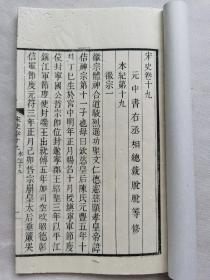 宋史卷十九
元中書右丞相總裁脫脫等修
本紀第十九
徽宗一
徽宗體神合道駿烈遜功聖文仁德憲慈顯孝皇帝諱
佶神宗第十一子也母曰欽慈皇后陳氏元豐五年十
月丁巳生於宮中明年正月賜名十月授鎮寧軍節度
使封寧國公哲宗即位封遂寧郡王紹聖三年以平江
鎮江軍節度使封端王出就傅五年加司空改昭德彰
信軍節度元符三年正月己卯哲宗崩皇太后垂簾哭